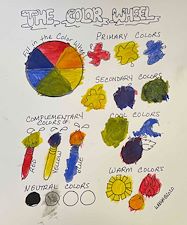 THE COLOR WHEEL
Fill in the Color Wheel
PRIMARY COLORS
SECONDARY COLORS
COMPLEMENTARY
COLORS OF
COOL COLORS
RED
YELLOW
BLUE
WARM COLORS
NEUTRAL COLORS